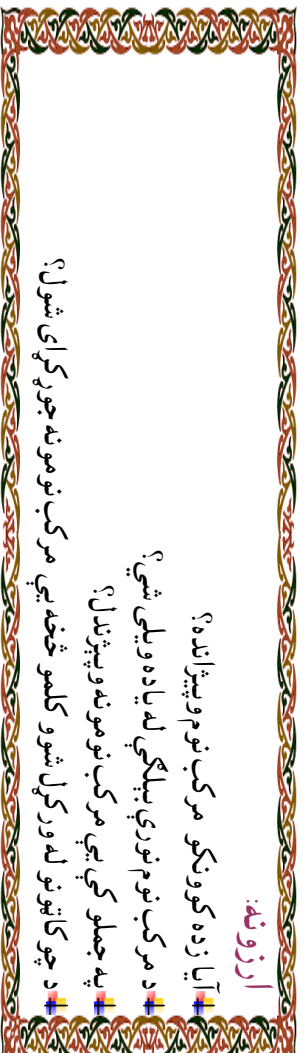 ارزونه:
آیا زده کوونکو مرکب نوم وپیژانده؟
د مرکب نوم نورې بیلګې له یاده ویلی شي؟
په جملو کې یې مرکب نومونه وپیژندل؟
د چوکاټونو له ورکړل شوو کلمو څخه یې مرکب نومونه جوړ کړای شول؟